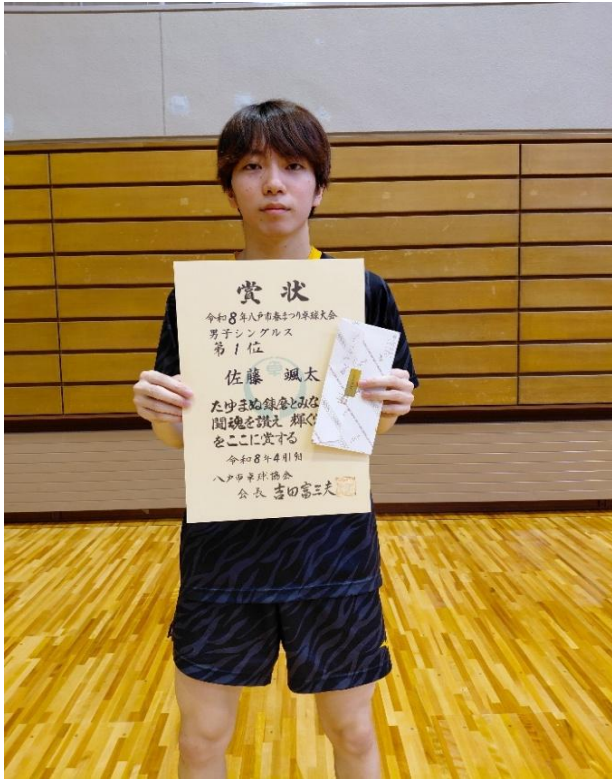 賞状
令和8年八戸市春まつり卓球大会
男子シングルス
第1位
佐藤 颯太
たゆまぬ錬磨とみな
闘魂を讃え 輝く
をここに賞する
令和8年4月
八戸市卓球協会
会長 吉田富三夫